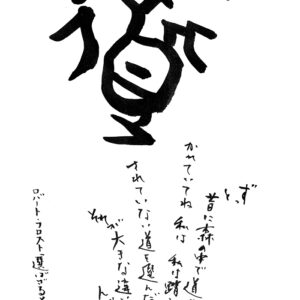 道
ずっと
昔に森の中で道
かれていてね 私は 私は踏
されていない道を選んだ
それが大きな違
ロバート・フロスト 選ばざる